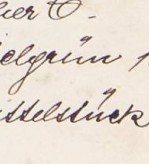 ber O.
elgrün
ttelstück